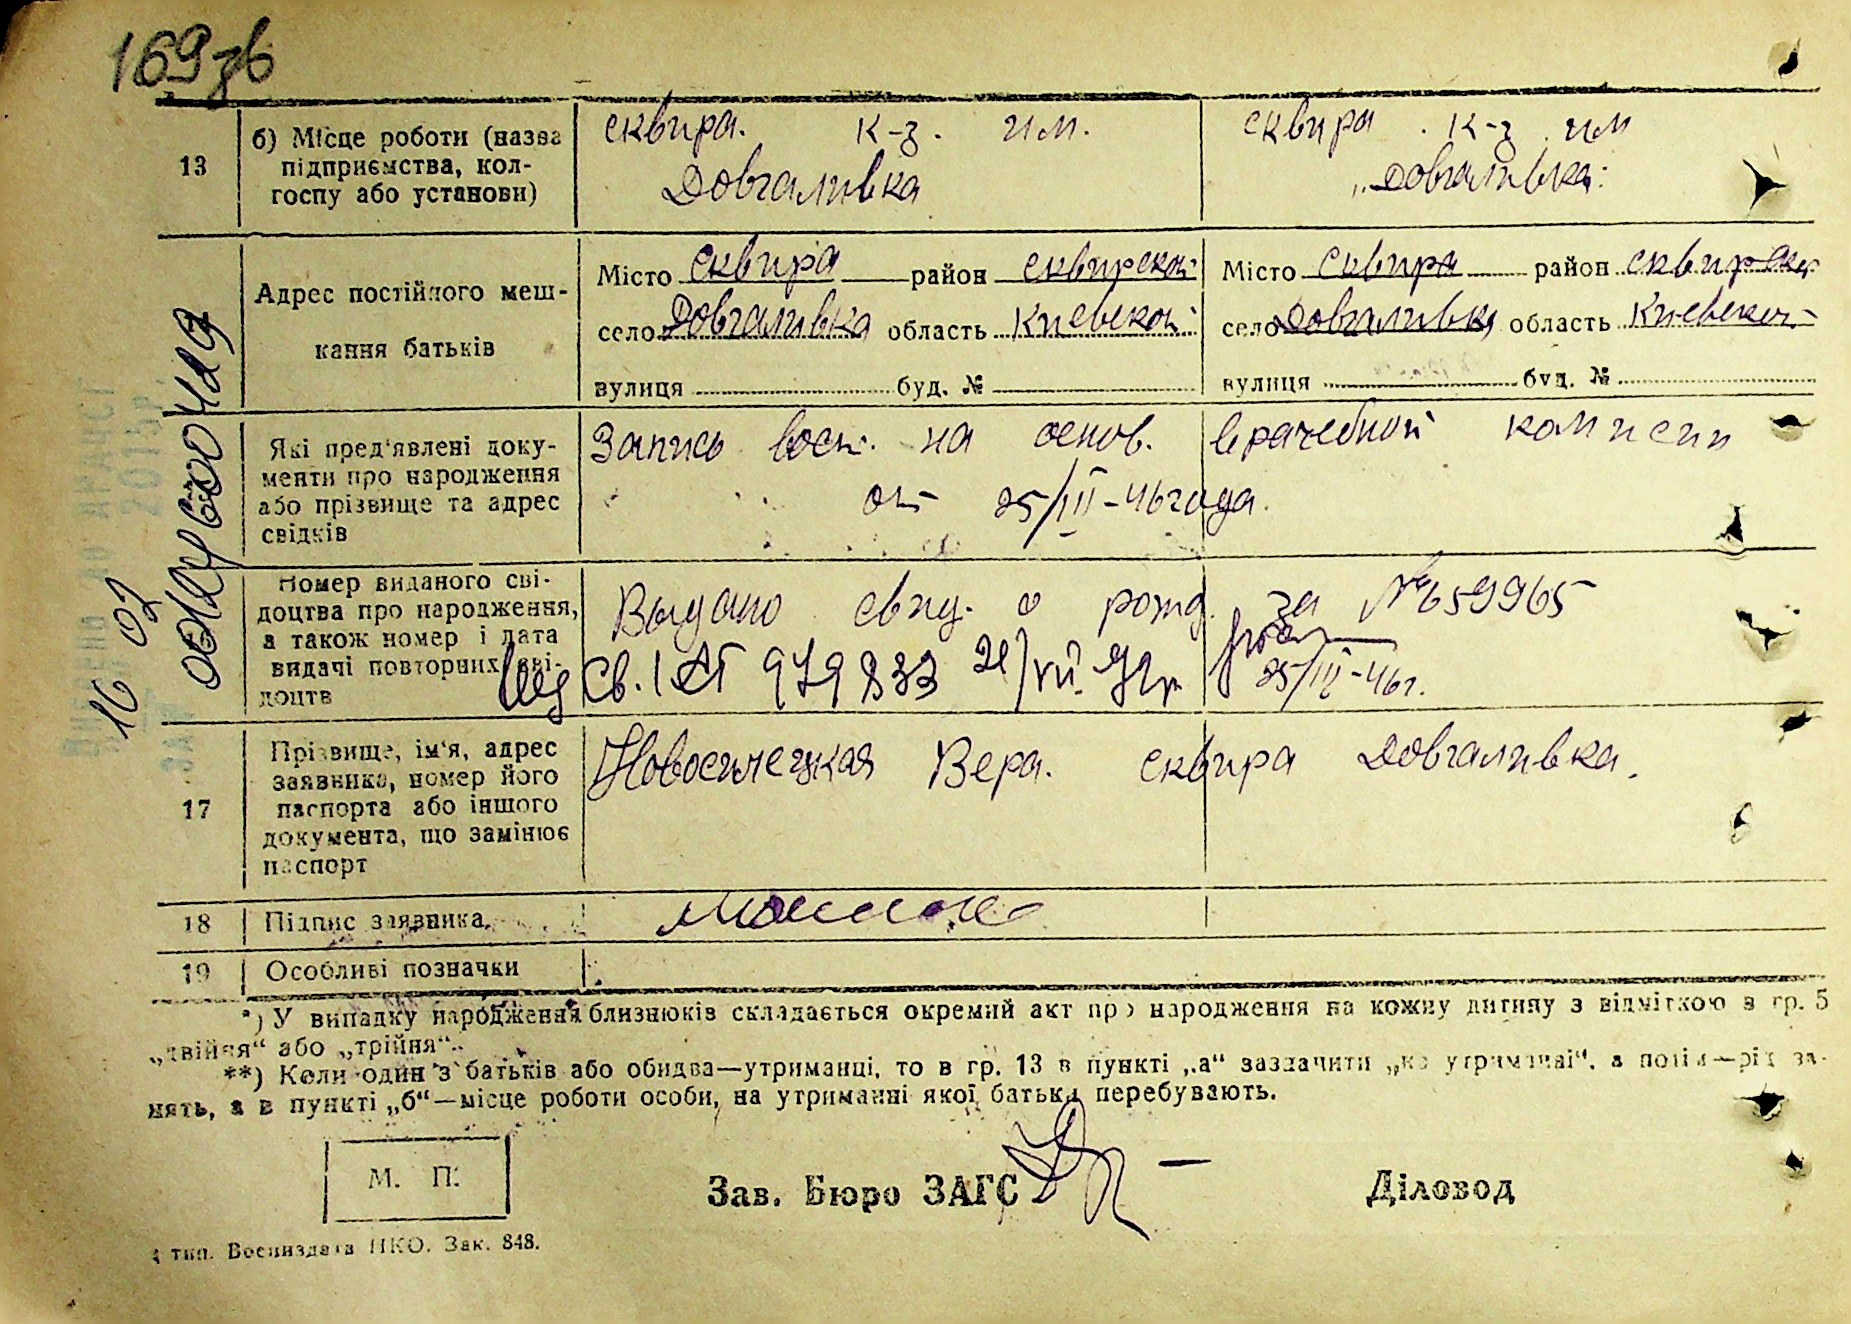 169зв
13
б) Місце роботи (назва підприємства, колгоспу або установи)
сквира. к-з. им.
Довгаливка
сквира. к-з им
„Довгаливка.
Адрес постійного мешкання батьків
Місто сквира район сквирский
село Довгаливка область Киевской
вулиця буд. №
Місто сквира район сквирский
село Довгаливка область Киевской
вулиця буд. №
Які пред'явлені документи про народження або прізвище та адрес свідків
Запись восст. на основ. врачебной комисии
от 25/III-46 года.
Номер виданого свідоцтва про народження, а також номер і дата видачі повторних свідоцтв
Выдано свид. о рожд. за № 659965
25/III-46г.
Св. 979833
17
Прізвище, ім'я, адрес заявника, номер його паспорта або іншого документа, що замінює паспорт
Новосилецкая Вера. сквира Довгаливка.
18
Підпис заявника
19
Особливі позначки
*) У випадку народження близнюків складається окремий акт про народження на кожну дитину з відміткою в гр. 5
„двійня“ або „трійня“.
**) Коли один з батьків або обидва—утриманці, то в гр. 13 в пункті „а“ зазначити „на утриманні“, а потім—рід за-
нять, а в пункті „б“—місце роботи особи, на утриманні якої батьки перебувають.
М. П.
Зав. Бюро ЗАГС
Діловод
тип. Воениздата НКО. Зак. 848.
16 02